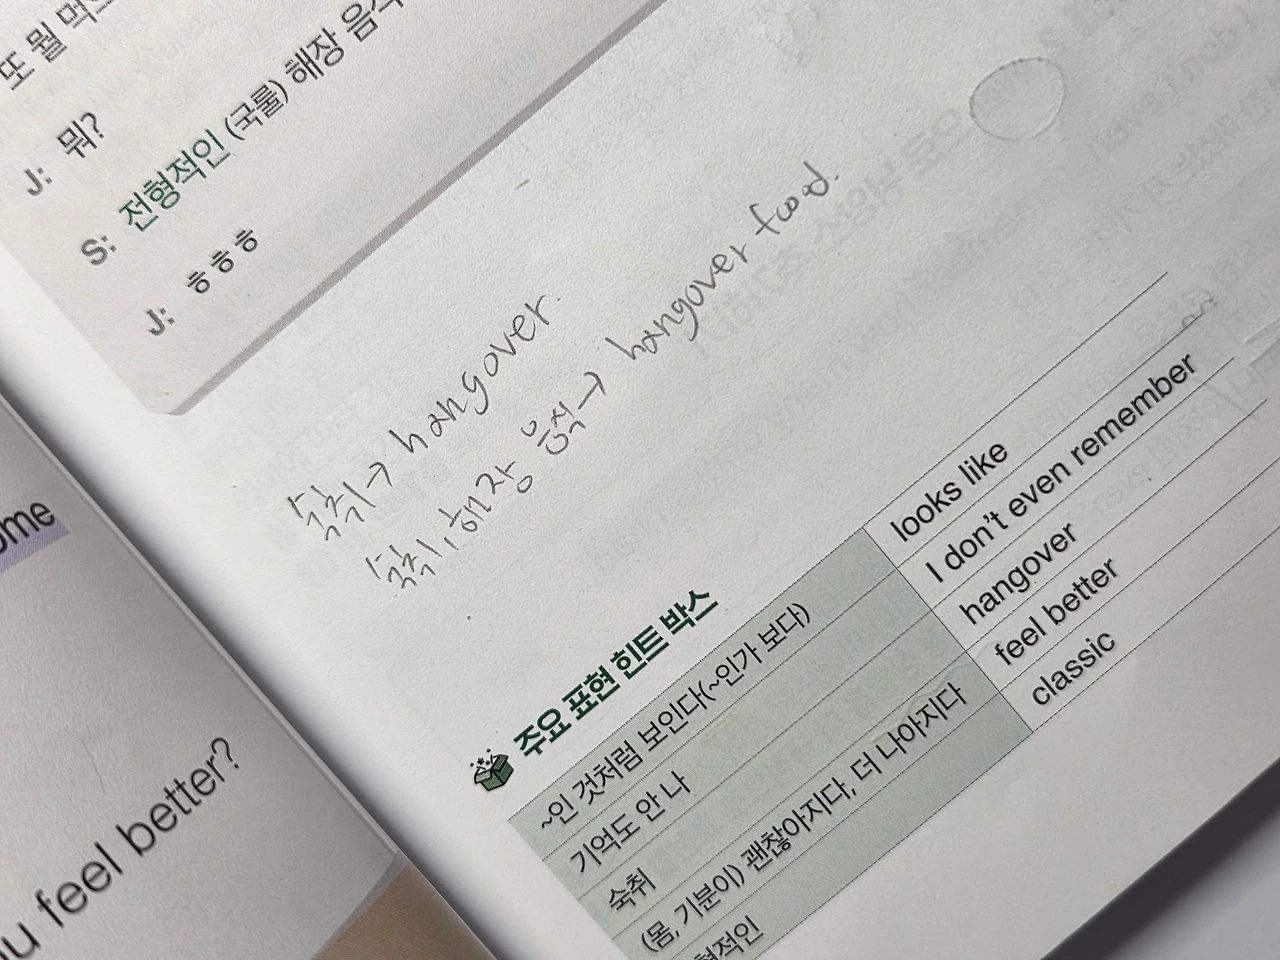 또 뭘 먹
J: 뭐?
S: 전형적인 (국룰) 해장 음식
J: ㅎㅎㅎ
숙취 → hangover.
숙취, 해장 음식 → hangover food.
주요 표현 힌트 박스
~인 것처럼 보인다(~인가 보다) looks like
기억도 안 나 I don't even remember
숙취 hangover
(몸, 기분이) 괜찮아지다, 더 나아지다 feel better
형적인 classic
ome
u feel better?